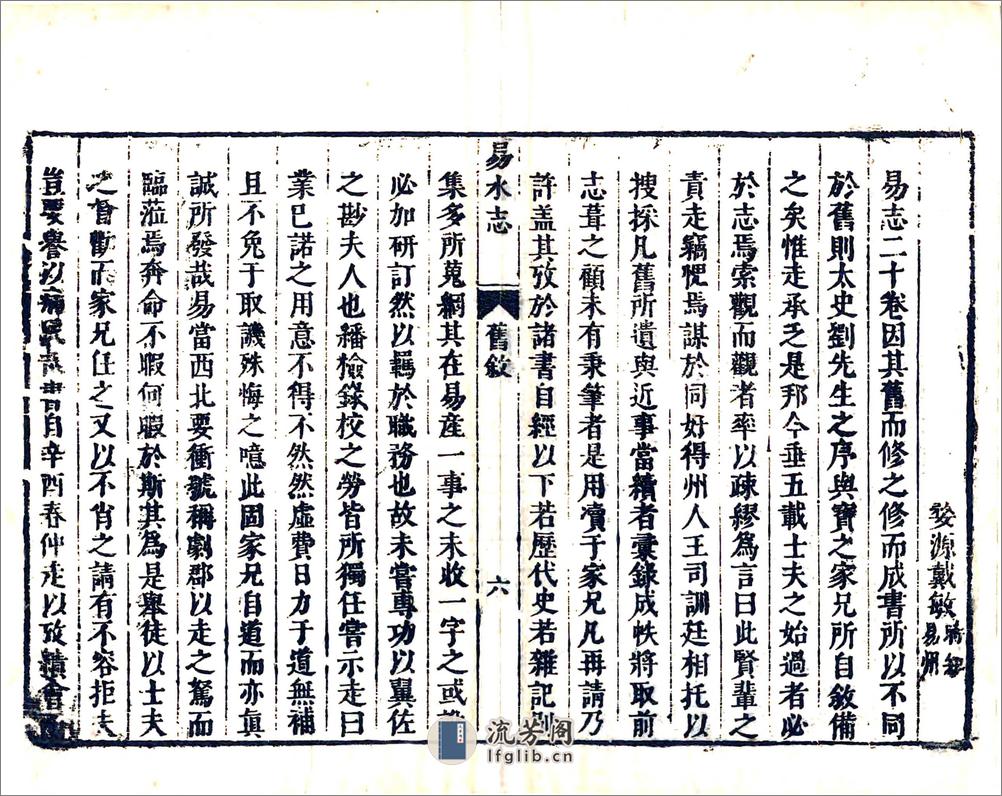 婺源戴敏
易志二十卷因其舊而修之修而成書所以不同
於舊則太史劉先生之序與寶之家兄所自敘備
之矣惟走承乏是邦今垂五載士夫之始過者必
於志焉索觀而觀者率以疎繆為言曰此賢輩之
責走竊愧焉謀於同好得州人王司訓廷相托以
搜採凡舊所遺與近事當續者彙錄成帙將取前
志葺之顧未有秉筆者是用凟于家兄凡再請乃
許盖其攷於諸書自經以下若歷代史若雜記別
易水志
舊敘
六
集多所蒐綱其在易産一事之未收一字之或
必加研訂然以羈於職務也故未嘗專功以翼佐
之尠夫人也繙檢錄校之勞皆所獨任嘗示走曰
業已諾之用意不得不然然虛費日力于道無補
且不免于取譏殊悔之噫此固家兄自道而亦眞
誠所發哉易當西北要衝號稱劇郡以走之駑而
臨蒞焉奔命不暇何暇於斯其為是舉徒以士夫
之會勸而家兄任之又以不肖之請有不容拒夫
豈要譽以病民哉書自辛酉春仲走以攷績會
流芳阁
lfglib.cn